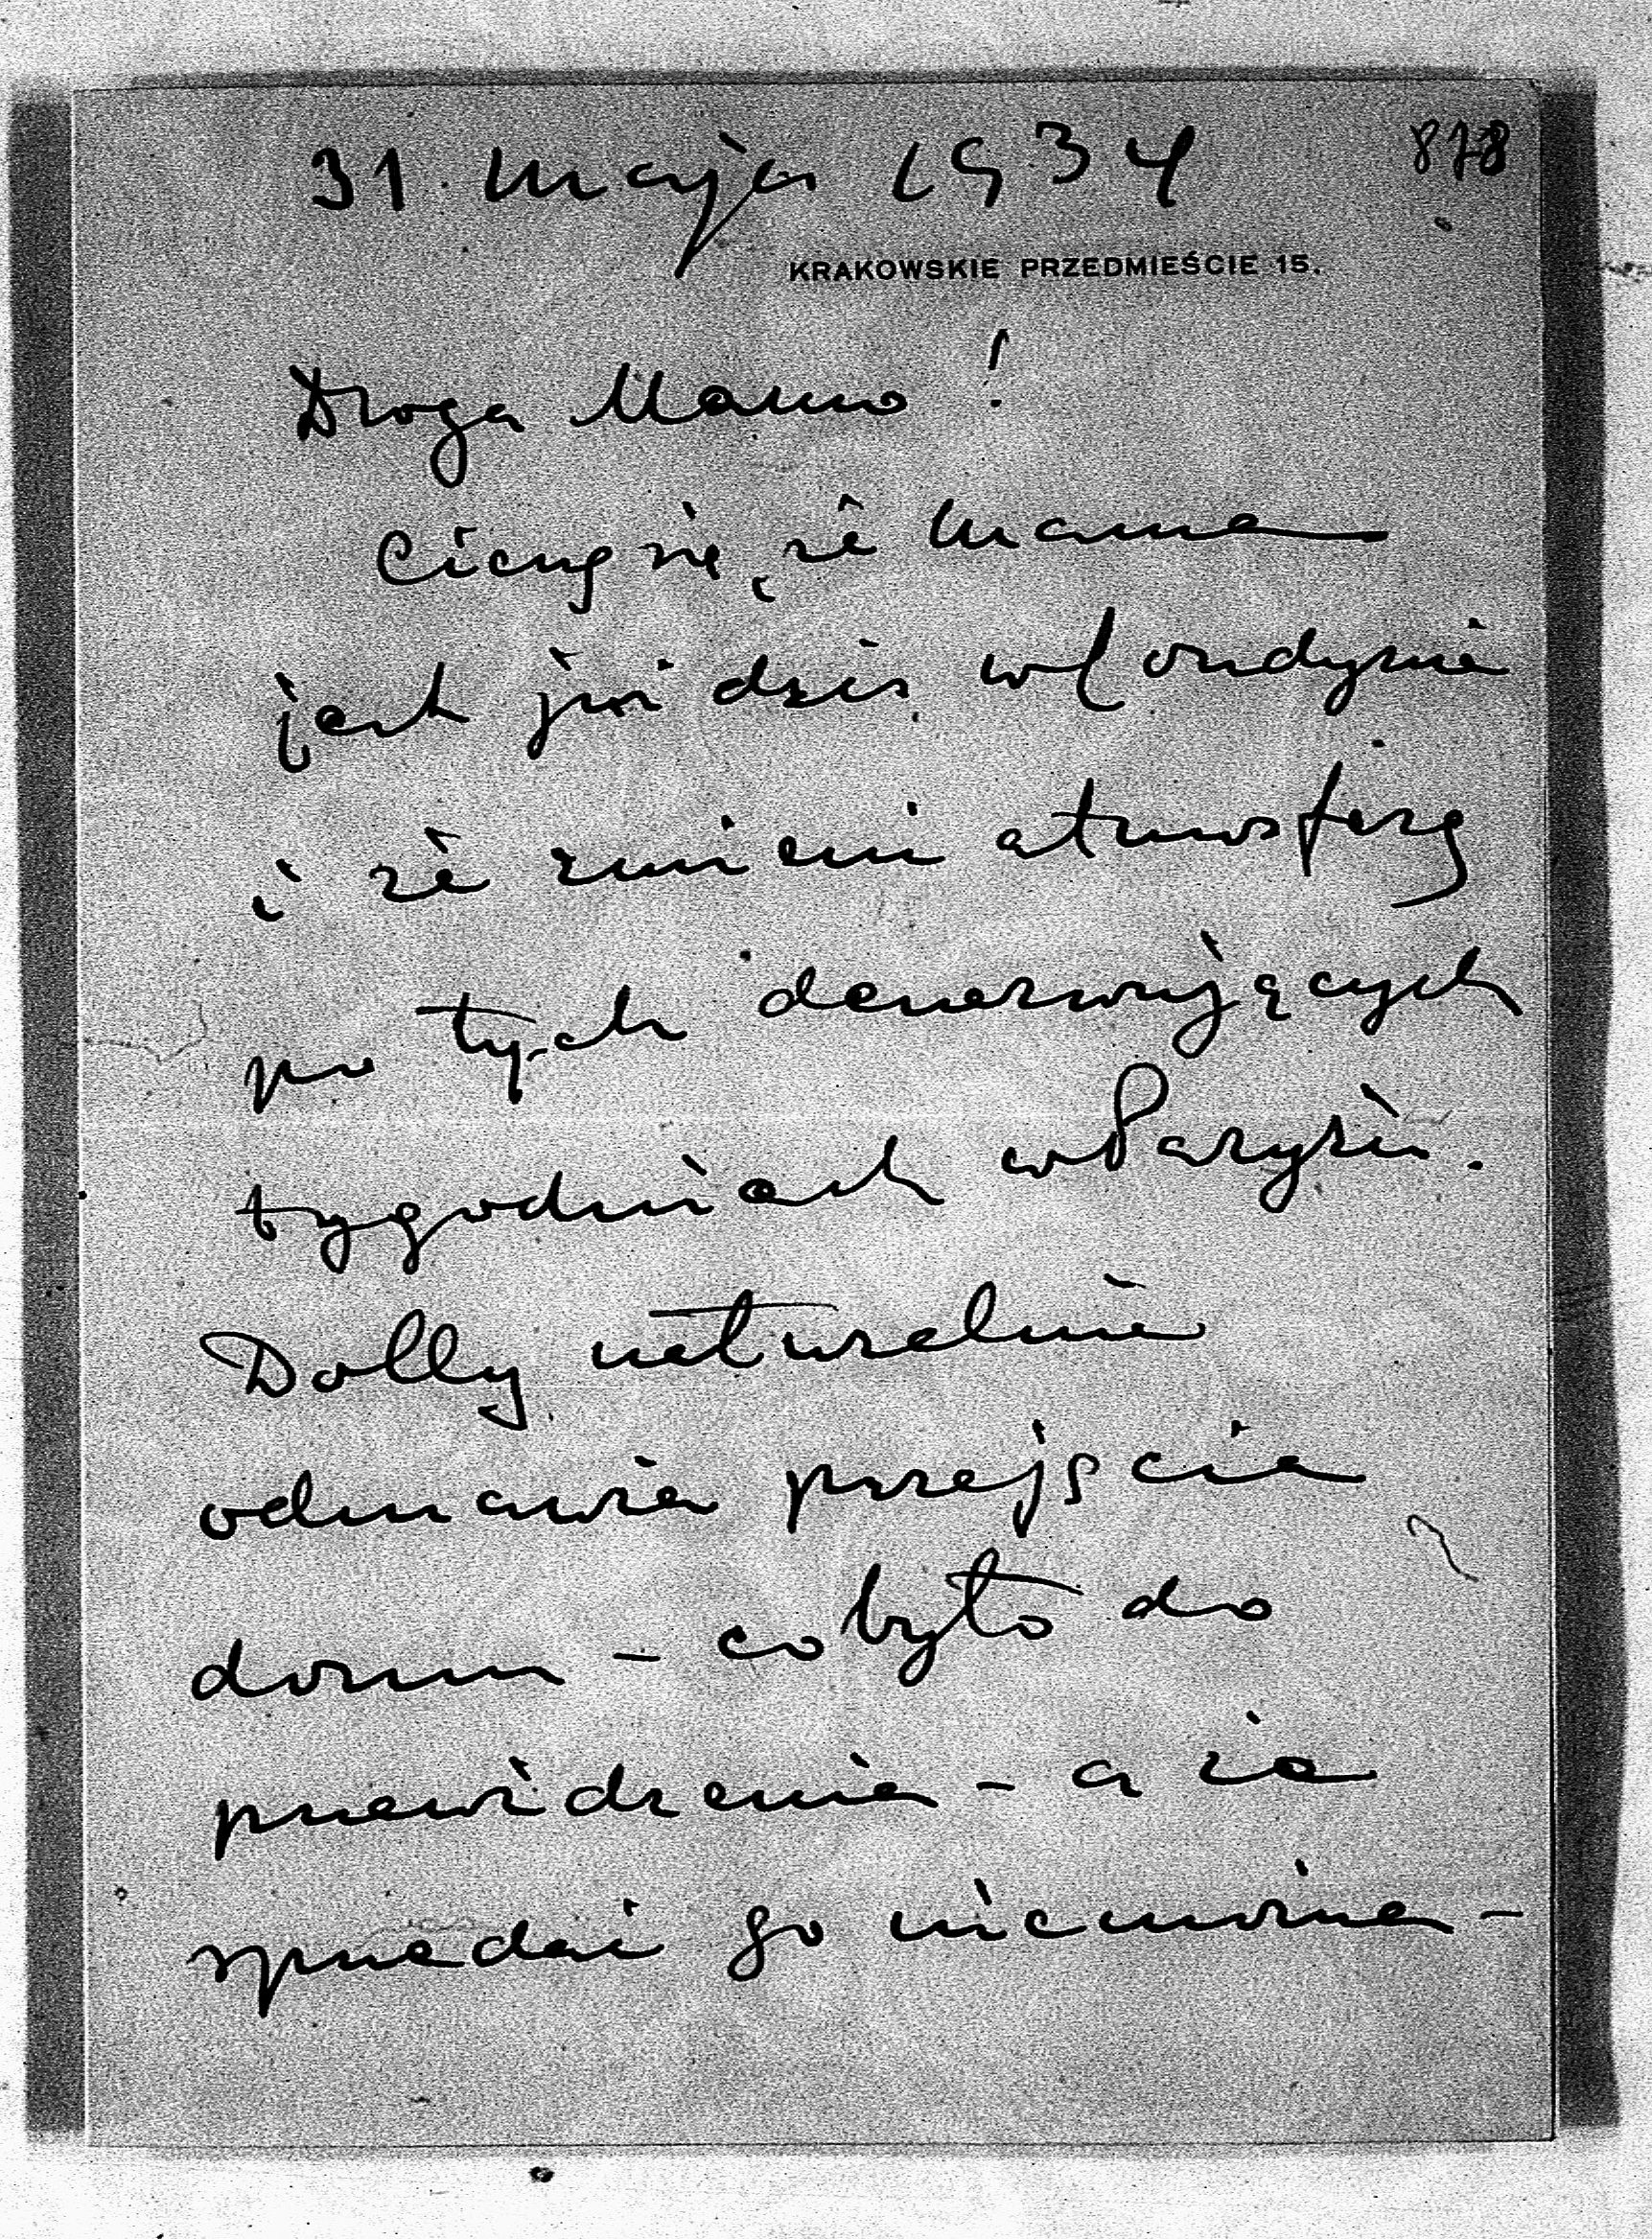 31 maja 1934
878
KRAKOWSKIE PRZEDMIEŚCIE 15.
Droga Mamo!
Cieszę się, że Mama
jest już dziś w Londynie
i że zmieni atmosferę
po tych denerwujących
tygodniach w Paryżu.
Dolly naturalnie
odmawia przejścia
domu – co było do
przewidzenia – a że
sprzedać go nie można –